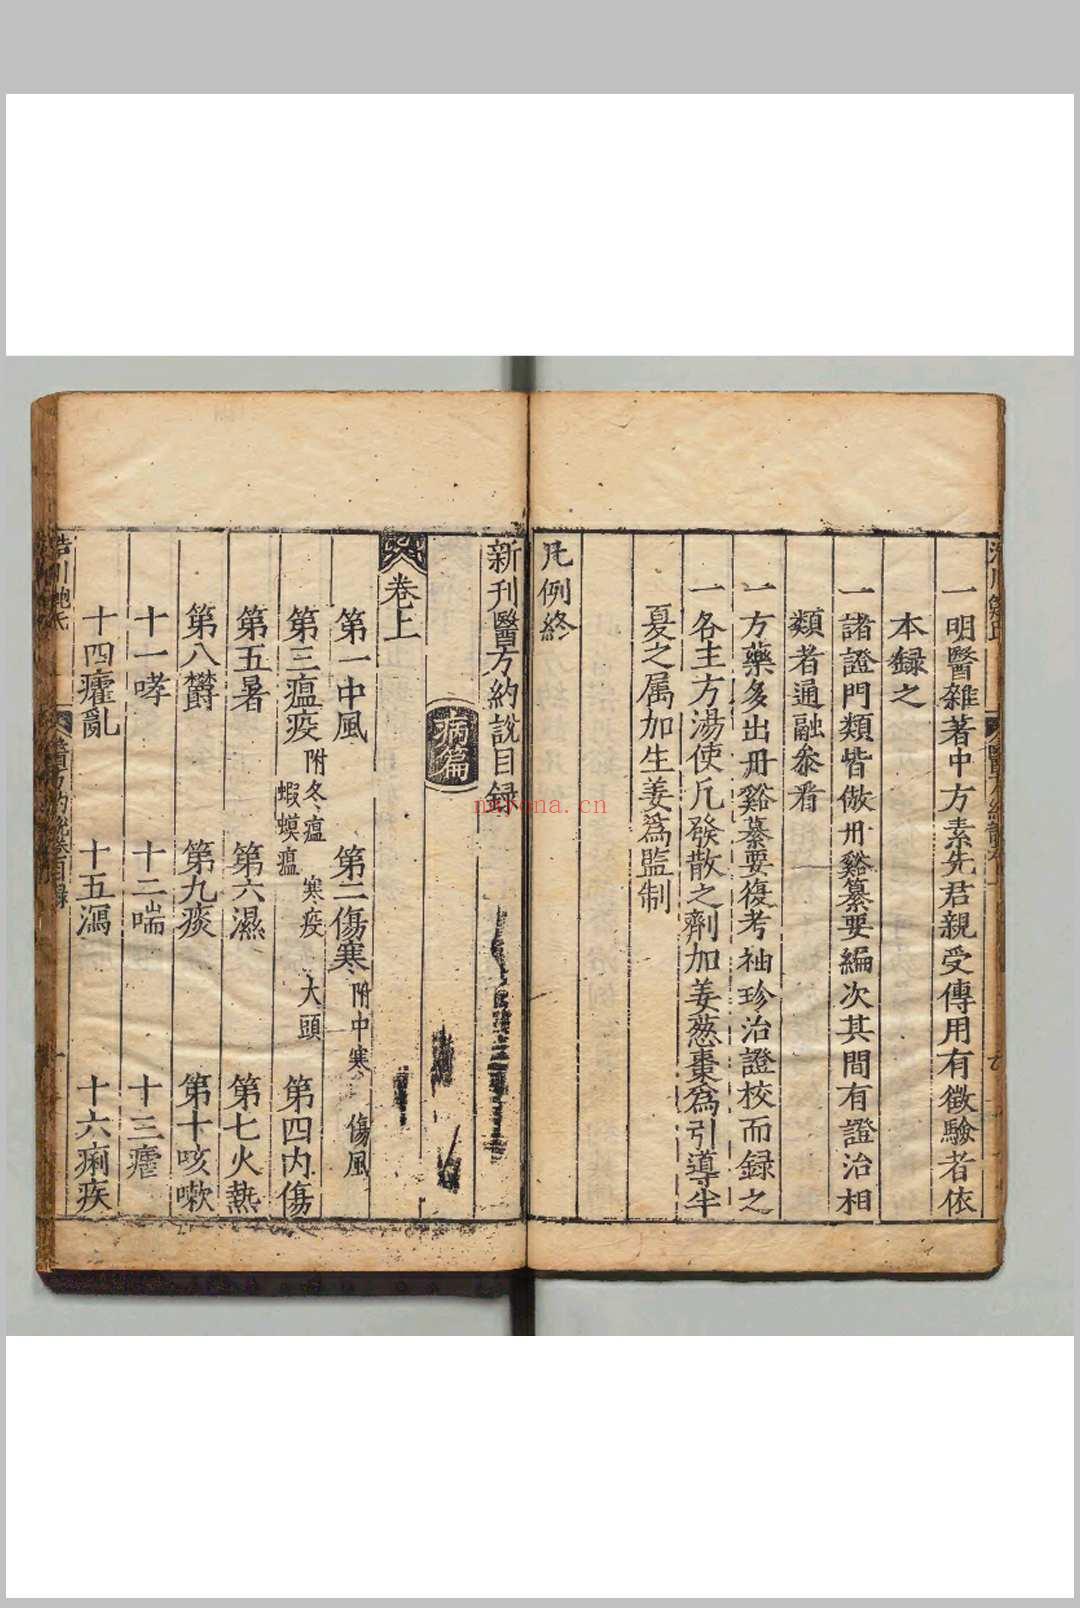 一明醫雜著中方素先君親受傳用有徵驗者依
本録之
一諸證門類皆倣丹谿纂要編次其間有證治相
類者通融叅看
一方藥多出丹谿纂要復考袖珍治證校而録之
一各主方湯使凡發散之劑加姜葱棗為引導半
夏之属加生姜爲監制
凡例終
新刊醫方約說目録
病篇
卷上
第一中風 第二傷寒 附中寒 傷風
第三瘟疫 附冬瘟 寒疫 大頭 蝦蟆瘟 第四内傷
第五暑 第六濕 第七火熱
第八欝 第九痰 第十咳嗽
十一哮 十二喘 十三瘧
十四癨亂 十五瀉 十六痢疾
nayona.cn